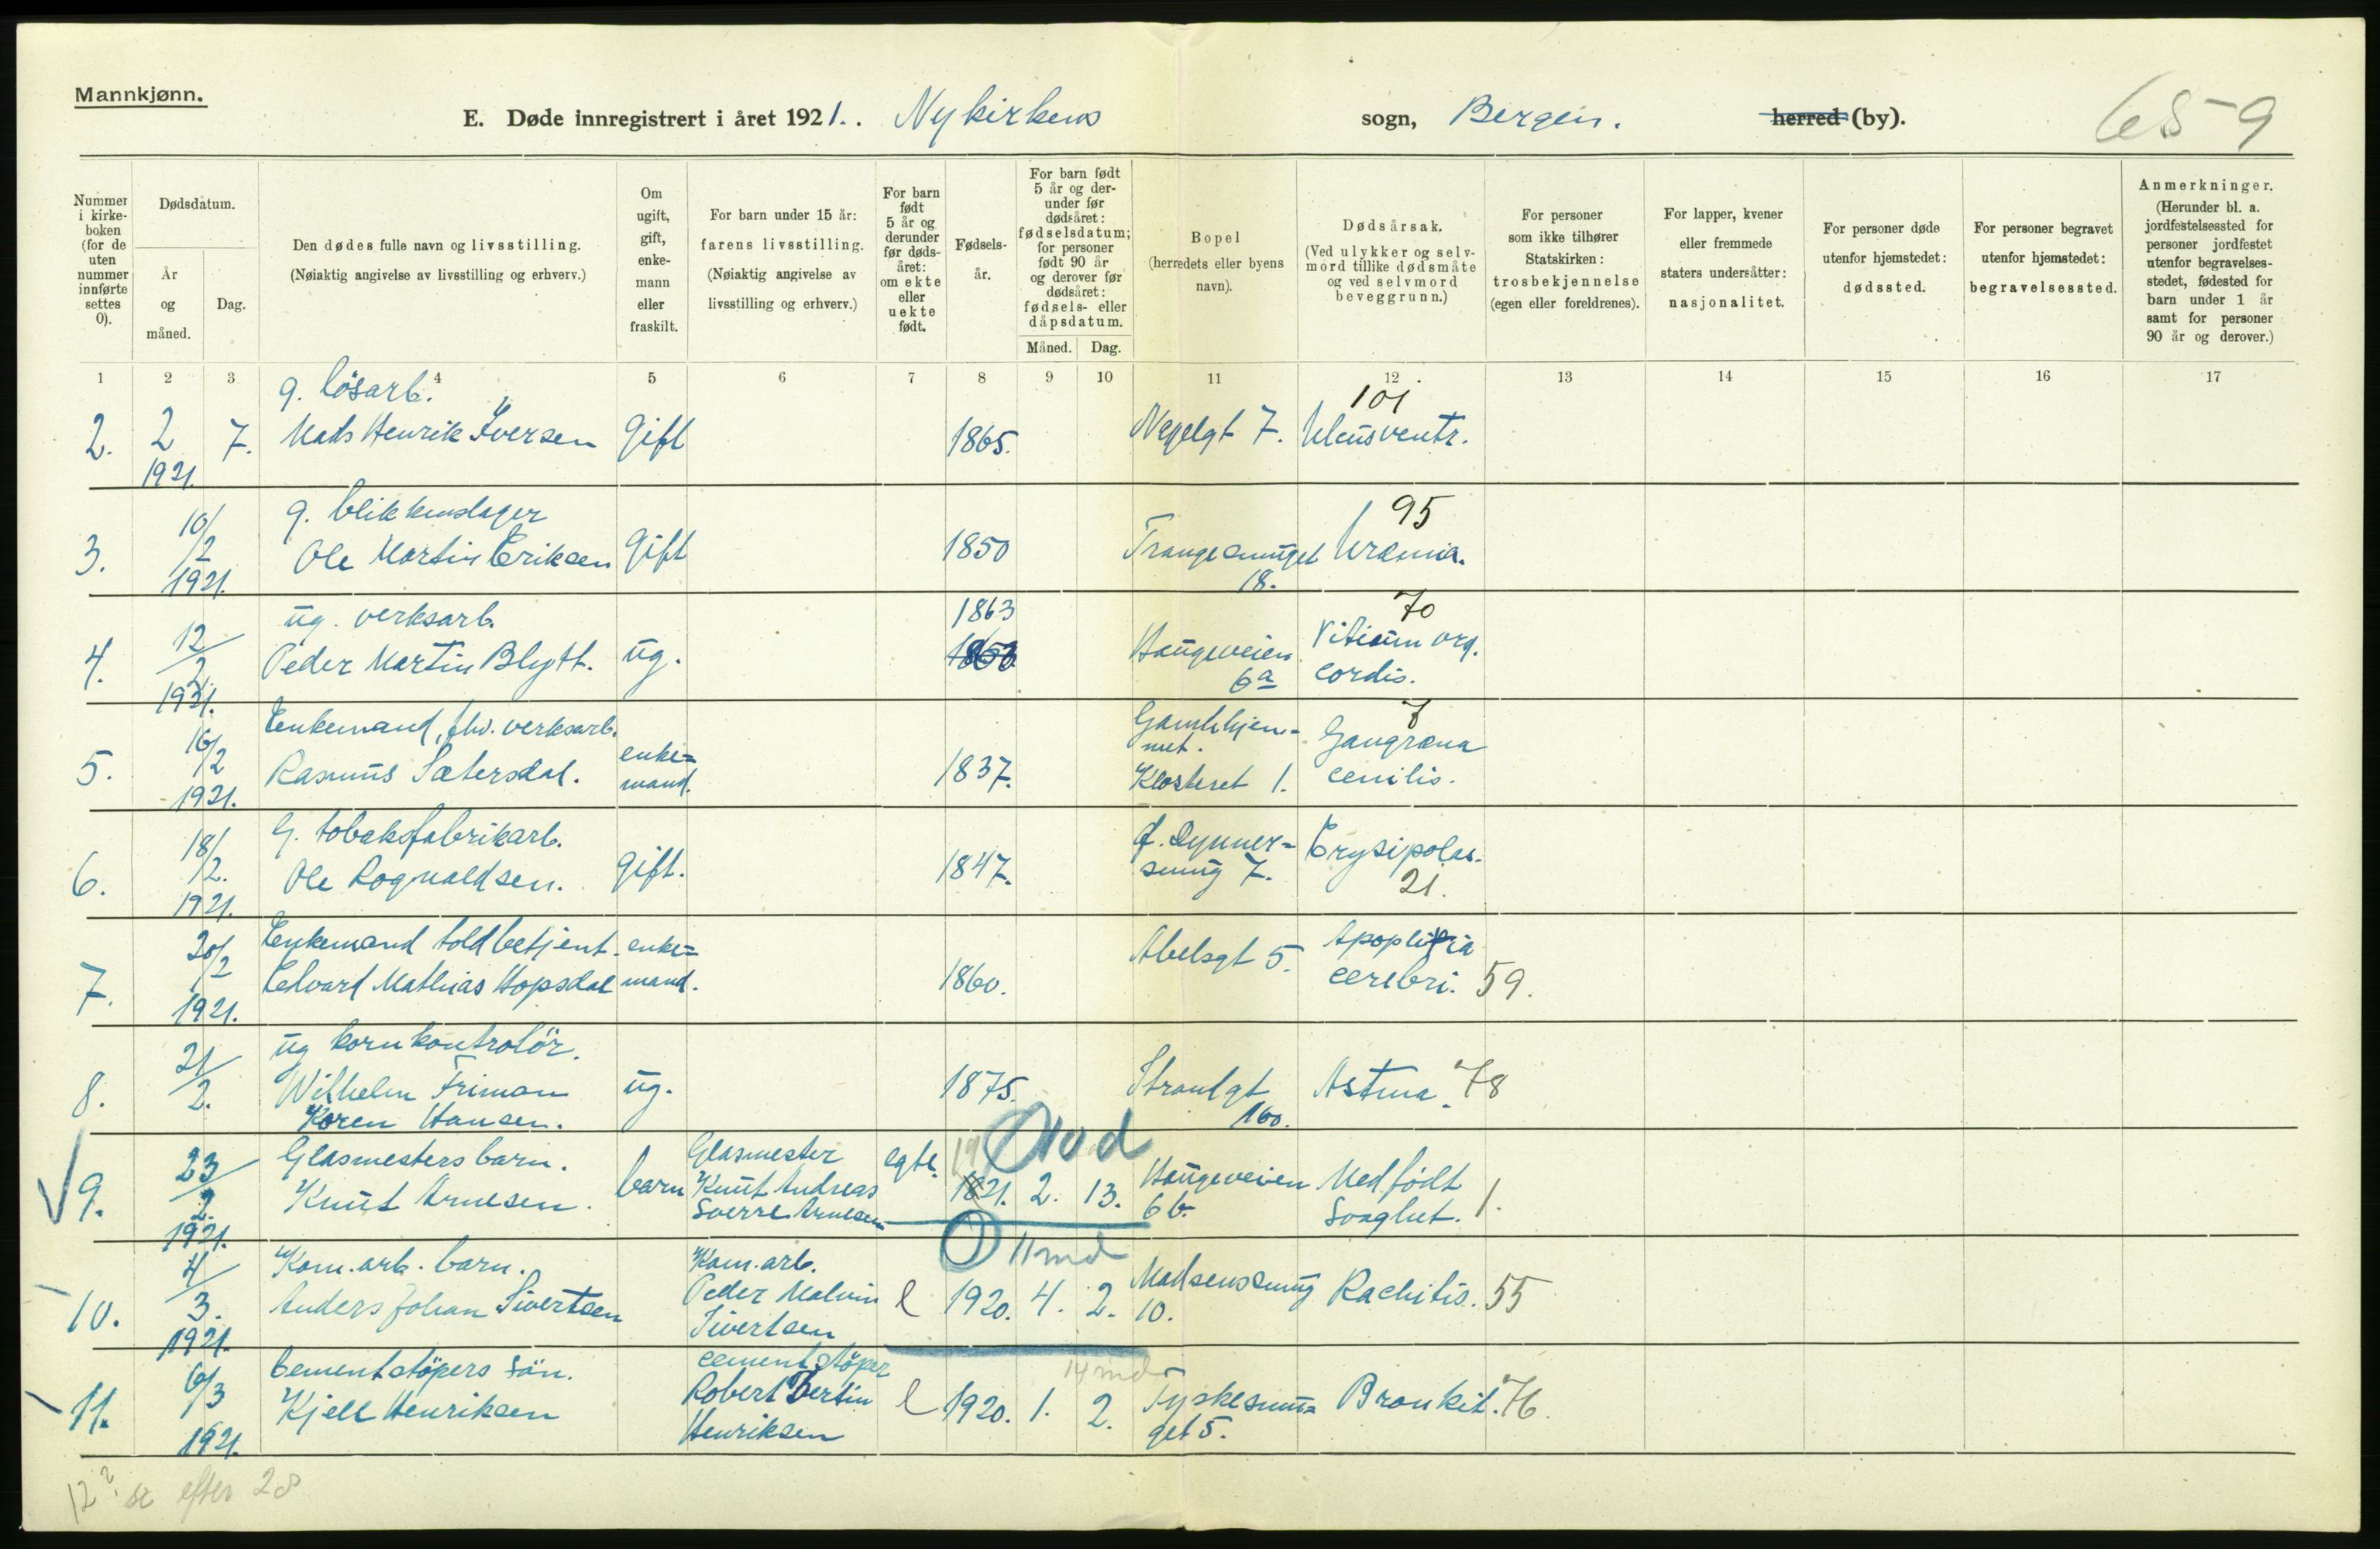 Mannkjønn.
E. Døde innregistrert i året 1921. . Nykirkens sogn, Bergen. herred (by).
659
Nummer i kirke-boken (for de uten nummer innførte settes 0).
Dødsdatum.
År og måned.
Dag.
Den dødes fulle navn og livsstilling.
(Nøiaktig angivelse av livsstilling og erhverv.)
Om ugift, gift, enke-mann eller fraskilt.
For barn under 15 år: farens livsstilling.
(Nøiaktig angivelse av livsstilling og erhverv.)
For barn født 5 år og derunder før døds-året: om ekte eller uekte født.
Fødsels-år.
For barn født 5 år og der-under før dødsåret: fødselsdatum; for personer født 90 år og derover før dødsåret: fødsels- eller dåpsdatum.
Måned. Dag.
Bopel
(herredets eller byens navn).
Dødsårsak.
(Ved ulykker og selv-mord tillike dødsmåte og ved selvmord beveggrunn.)
For personer som ikke tilhører Statskirken: trosbekjennelse (egen eller foreldrenes).
For lapper, kvener eller fremmede staters undersåtter: nasjonalitet.
For personer døde utenfor hjemstedet: dødssted.
For personer begravet utenfor hjemstedet: begravelsessted.
Anmerkninger.
(Herunder bl. a. jordfestelsessted for personer jordfestet utenfor begravelses-stedet, fødested for barn under 1 år samt for personer 90 år og derover.)
1 2 3 4 5 6 7 8 9 10 11 12 13 14 15 16 17
g. løsarb. 101
2. 2 7. Mads Henrik Iversen gift 1865. Negelgt 7. Ulcus ventr.
1921.
g. blikkenslager 95
3. 10/2 Ole Martin Eriksen gift 1850 Trangesmuget Uræmia.
1921. 18.
ug. verksarb. 1863 70
4. 12/2 Peder Martin Blytt. ug. 1853 Haugeveien Vitium org.
1921. 6a cordis.
Enkemand, fhv. verksarb. Gamlehjem- 7
5. 16/2 enke= met. Gangræna
Rasmus Sætersdal. mand. 1837. Klosteret 1. cenilis.
1921.
G. tobaksfabrikarb.
6. 18/2. Ole Rognaldsen. gift. 1847. Dynner= Erysipelas.
1921. smug 7. 21.
Enkemand toldbetjent. enke= Apoplexia
7. 20/2 Edvard Mathias Hopsdal mand. 1860. Abelsgt 5. cerebri. 59.
1921.
ug kornkontrolör.
8. 21/2. Wilhelm Friman ug. 1875. Strandgt Astma. 78
Koren Hansen. 160.
Glasmesters barn. Glasmester egte. 19 0 10 d
9. 23/2. Knut Arnesen. barn Knut Andreas 1821. 2. 13. Haugeveien Medfødt
1921. Sverre Arnesen 6b. svaghet. 1.
Kom. arb. barn. Kom. arb. 0 11 md
10. 4/3. Anders Johan Sivertsen Peder Malvin e 1920. 4. 2. Madsenssmug Rachitis. 55
1921. Sivertsen 10.
Cementstøpers søn. cementstøper 14 md
11. 6/3 Kjell Henriksen Robert Bertin e 1920. 1. 2. Tyskesmu= Bronkit. 76.
1921. Henriksen get 5.
12? se efter 28